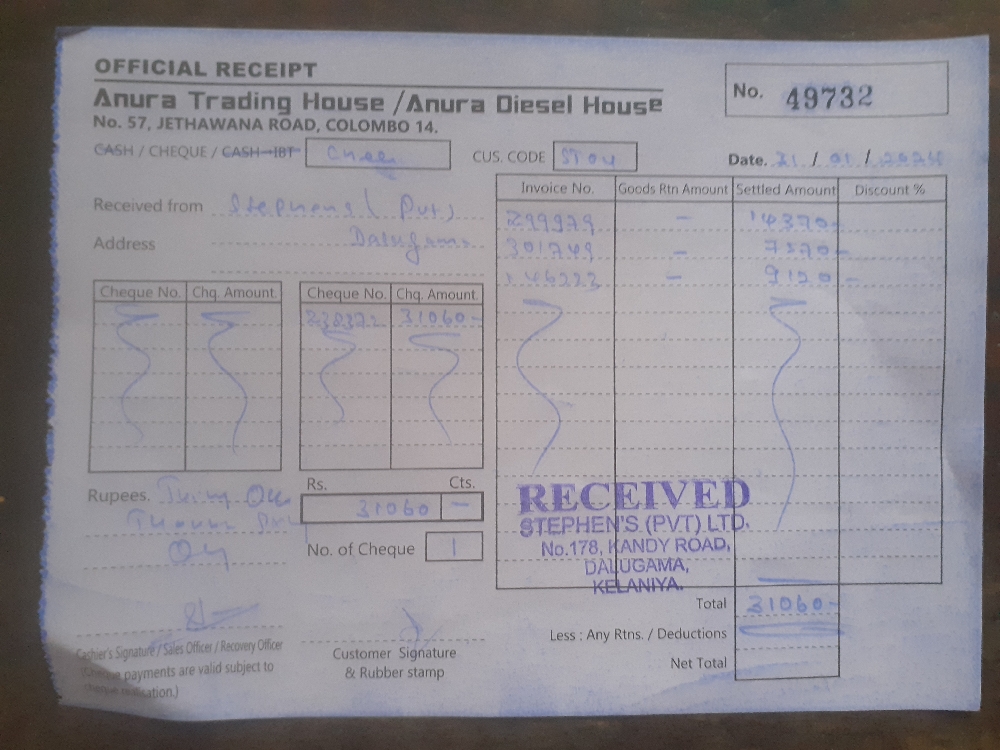 OFFICIAL RECEIPT
Anura Trading House / Anura Diesel House
No. 57, JETHAWANA ROAD, COLOMBO 14.
No. 49732
CASH / CHEQUE / CASH-IBT
CUS. CODE ST04
Date. 31 / 01 / 2024
Received from Stephens (Pvt)
Address Dalugama
Invoice No. Goods Rtn Amount Settled Amount Discount %
299979 - 14370-
301749 - 7570-
146223 - 9120-
Cheque No. Chq. Amount. Cheque No. Chq. Amount.
31060-
Rupees. Thirty One
Only
Rs. Cts.
31060 -
No. of Cheque 1
RECEIVED
STEPHEN'S (PVT) LTD.
No.178, KANDY ROAD,
DALUGAMA,
KELANIYA.
Total 31060-
Less : Any Rtns. / Deductions
Net Total
Cashier's Signature / Sales Officer / Recovery Officer
(Cheque payments are valid subject to
cheque realisation.)
Customer Signature
& Rubber stamp